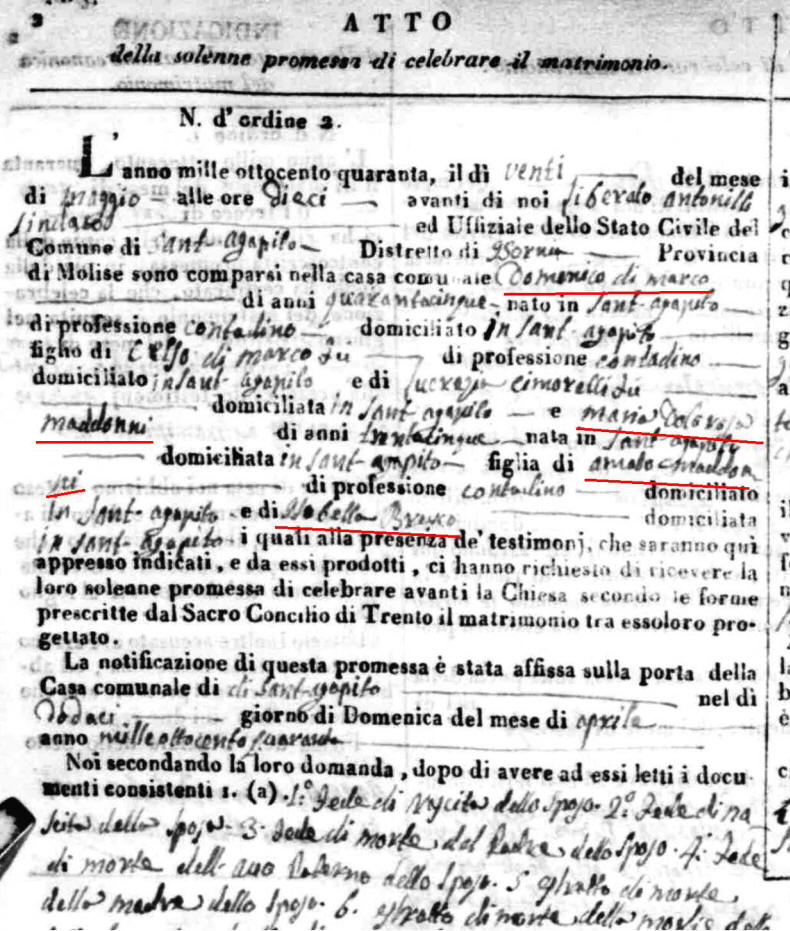 2
ATTO
della solenne promessa di celebrare il matrimonio.
N. d'ordine 2.
L'anno mille ottocento quaranta, il di venti del mese
di Maggio alle ore dieci avanti di noi Liberato Antonelli
Sindaco ed Uffiziale dello Stato Civile del
Comune di Sant agapito Distretto di Isernia Provincia
di Molise sono comparsi nella casa comunale Domenico di marco
di anni quarantacinque nato in Sant agapito
di professione contadino domiciliato in Sant agapito
figlio di Celso di marco fu di professione contadino
domiciliato in Sant agapito e di Lucrezia cimorelli fu
domiciliata in Sant agapito e maria Dolorosa
maddonni di anni trentacinque nata in Sant agapito
domiciliata in Sant agapito figlia di amato maddon
ni di professione contadino domiciliato
in Sant agapito e di Isabella domiciliata
in Sant agapito i quali alla presenza de' testimonj, che saranno qui
appresso indicati, e da essi prodotti, ci hanno richiesto di ricevere la
loro solenne promessa di celebrare avanti la Chiesa secondo le forme
prescritte dal Sacro Concilio di Trento il matrimonio tra essoloro pro-
gettato.
La notificazione di questa promessa è stata affissa sulla porta della
Casa comunale di di Sant agapito nel dì
Dodaci giorno di Domenica del mese di aprile
anno mille ottocento quaranta
Noi secondando la loro domanda, dopo di avere ad essi letti i docu-
menti consistenti 1. (a) 1.º Fede di nascita dello sposo. 2.º Fede di na
scita della sposa. 3. Fede di morte del Padre dello sposo. 4. Fede
di morte dell avo Paterno dello sposo. 5 estratto di morte
della madre dello sposo. 6. estratto di morte della moglie dello